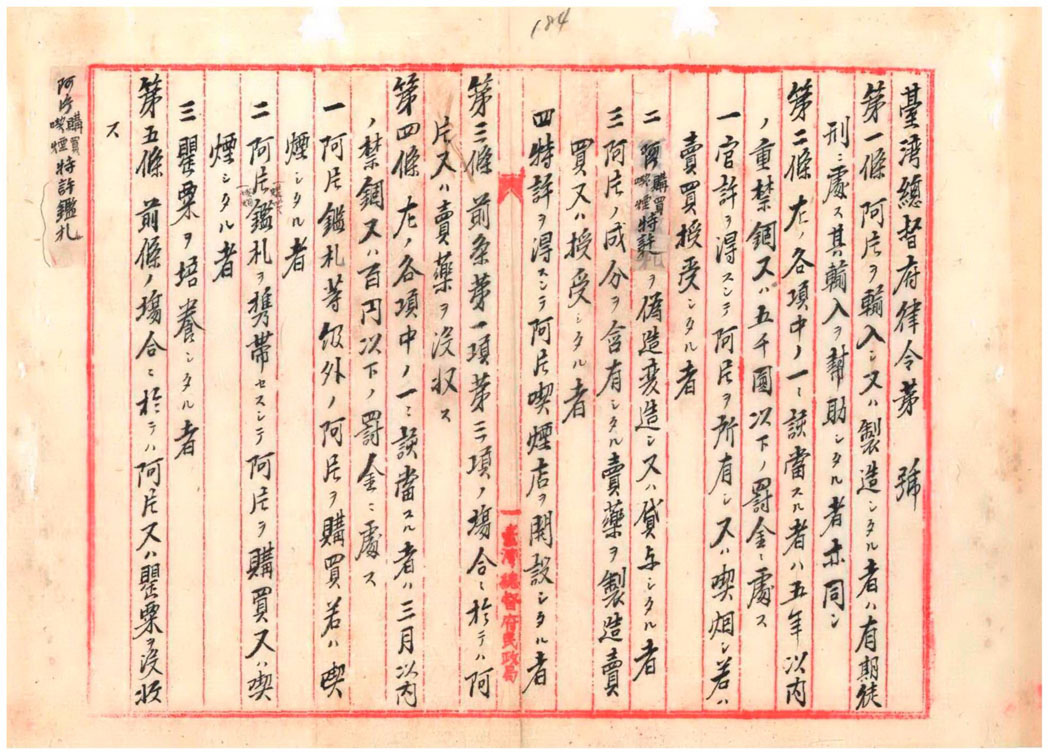 184
臺灣總督府律令第　號
第一條 阿片ヲ輸入シ又ハ製造シタル者ハ有期徒
刑ニ處ス其輸入ヲ幇助シタル者亦同シ
第二條 左ノ各項中ノ一ニ該當スル者ハ五年以内
ノ重禁錮又ハ五千圓以下ノ罰金ニ處ス
一 官許ヲ得スシテ阿片ヲ所有シ又ハ喫烟シ若ハ
賣買授受シタル者
二 購買喫煙特許ヲ偽造変造シ又ハ貸与シタル者
三 阿片ノ成分ヲ含有シタル賣藥ヲ製造賣
買又ハ授受シタル者
四 特許ヲ得スシテ阿片喫煙店ヲ開設シタル者
第三條 前条第一項第三項ノ塲合ニ於テハ阿
片又ハ賣藥ヲ没収ス
第四條 左ノ各項中ノ一ニ該當スル者ハ三月以内
ノ禁錮又ハ百円以下ノ罰金ニ處ス
一 阿片鑑札等級外ノ阿片ヲ購買若ハ喫
煙シタル者
二 阿片鑑札ヲ携帯セスシテ阿片ヲ購買又ハ喫
煙シタル者
三 罌粟ヲ培養シタル者
第五條 前條ノ塲合ニ於テハ阿片又ハ罌粟ヲ没収
ス
阿片購買喫煙特許鑑札
臺灣總督府民政局